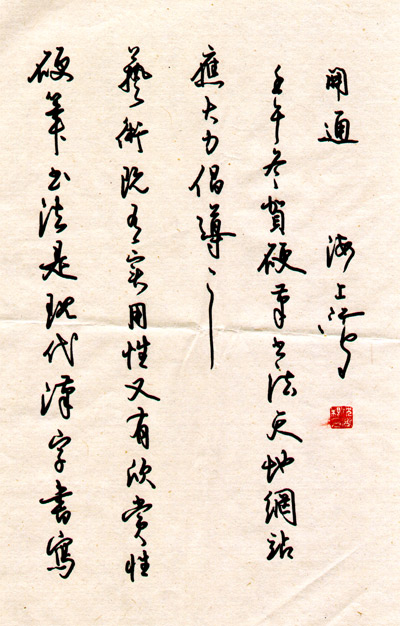 硬筆书法是现代漢字書寫
藝術既有实用性又有欣赏性
應大力倡導之
壬午冬賀硬筆书法天地網站
開通
海上